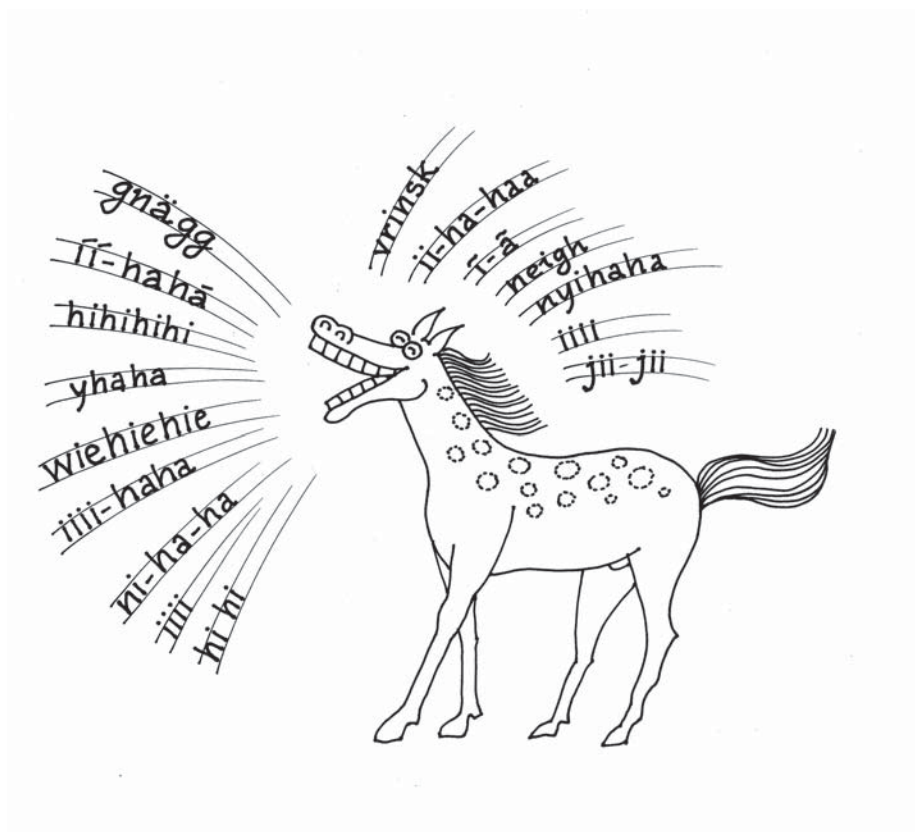 gnägg
íí-hahá
hihihihi
yhaha
wiehiehie
iiii-haha
ni-ha-ha
iiii
hi hi
vrinsk
ii-ha-haa
ī-ā
neigh
nyihaha
iiii
jii-jii